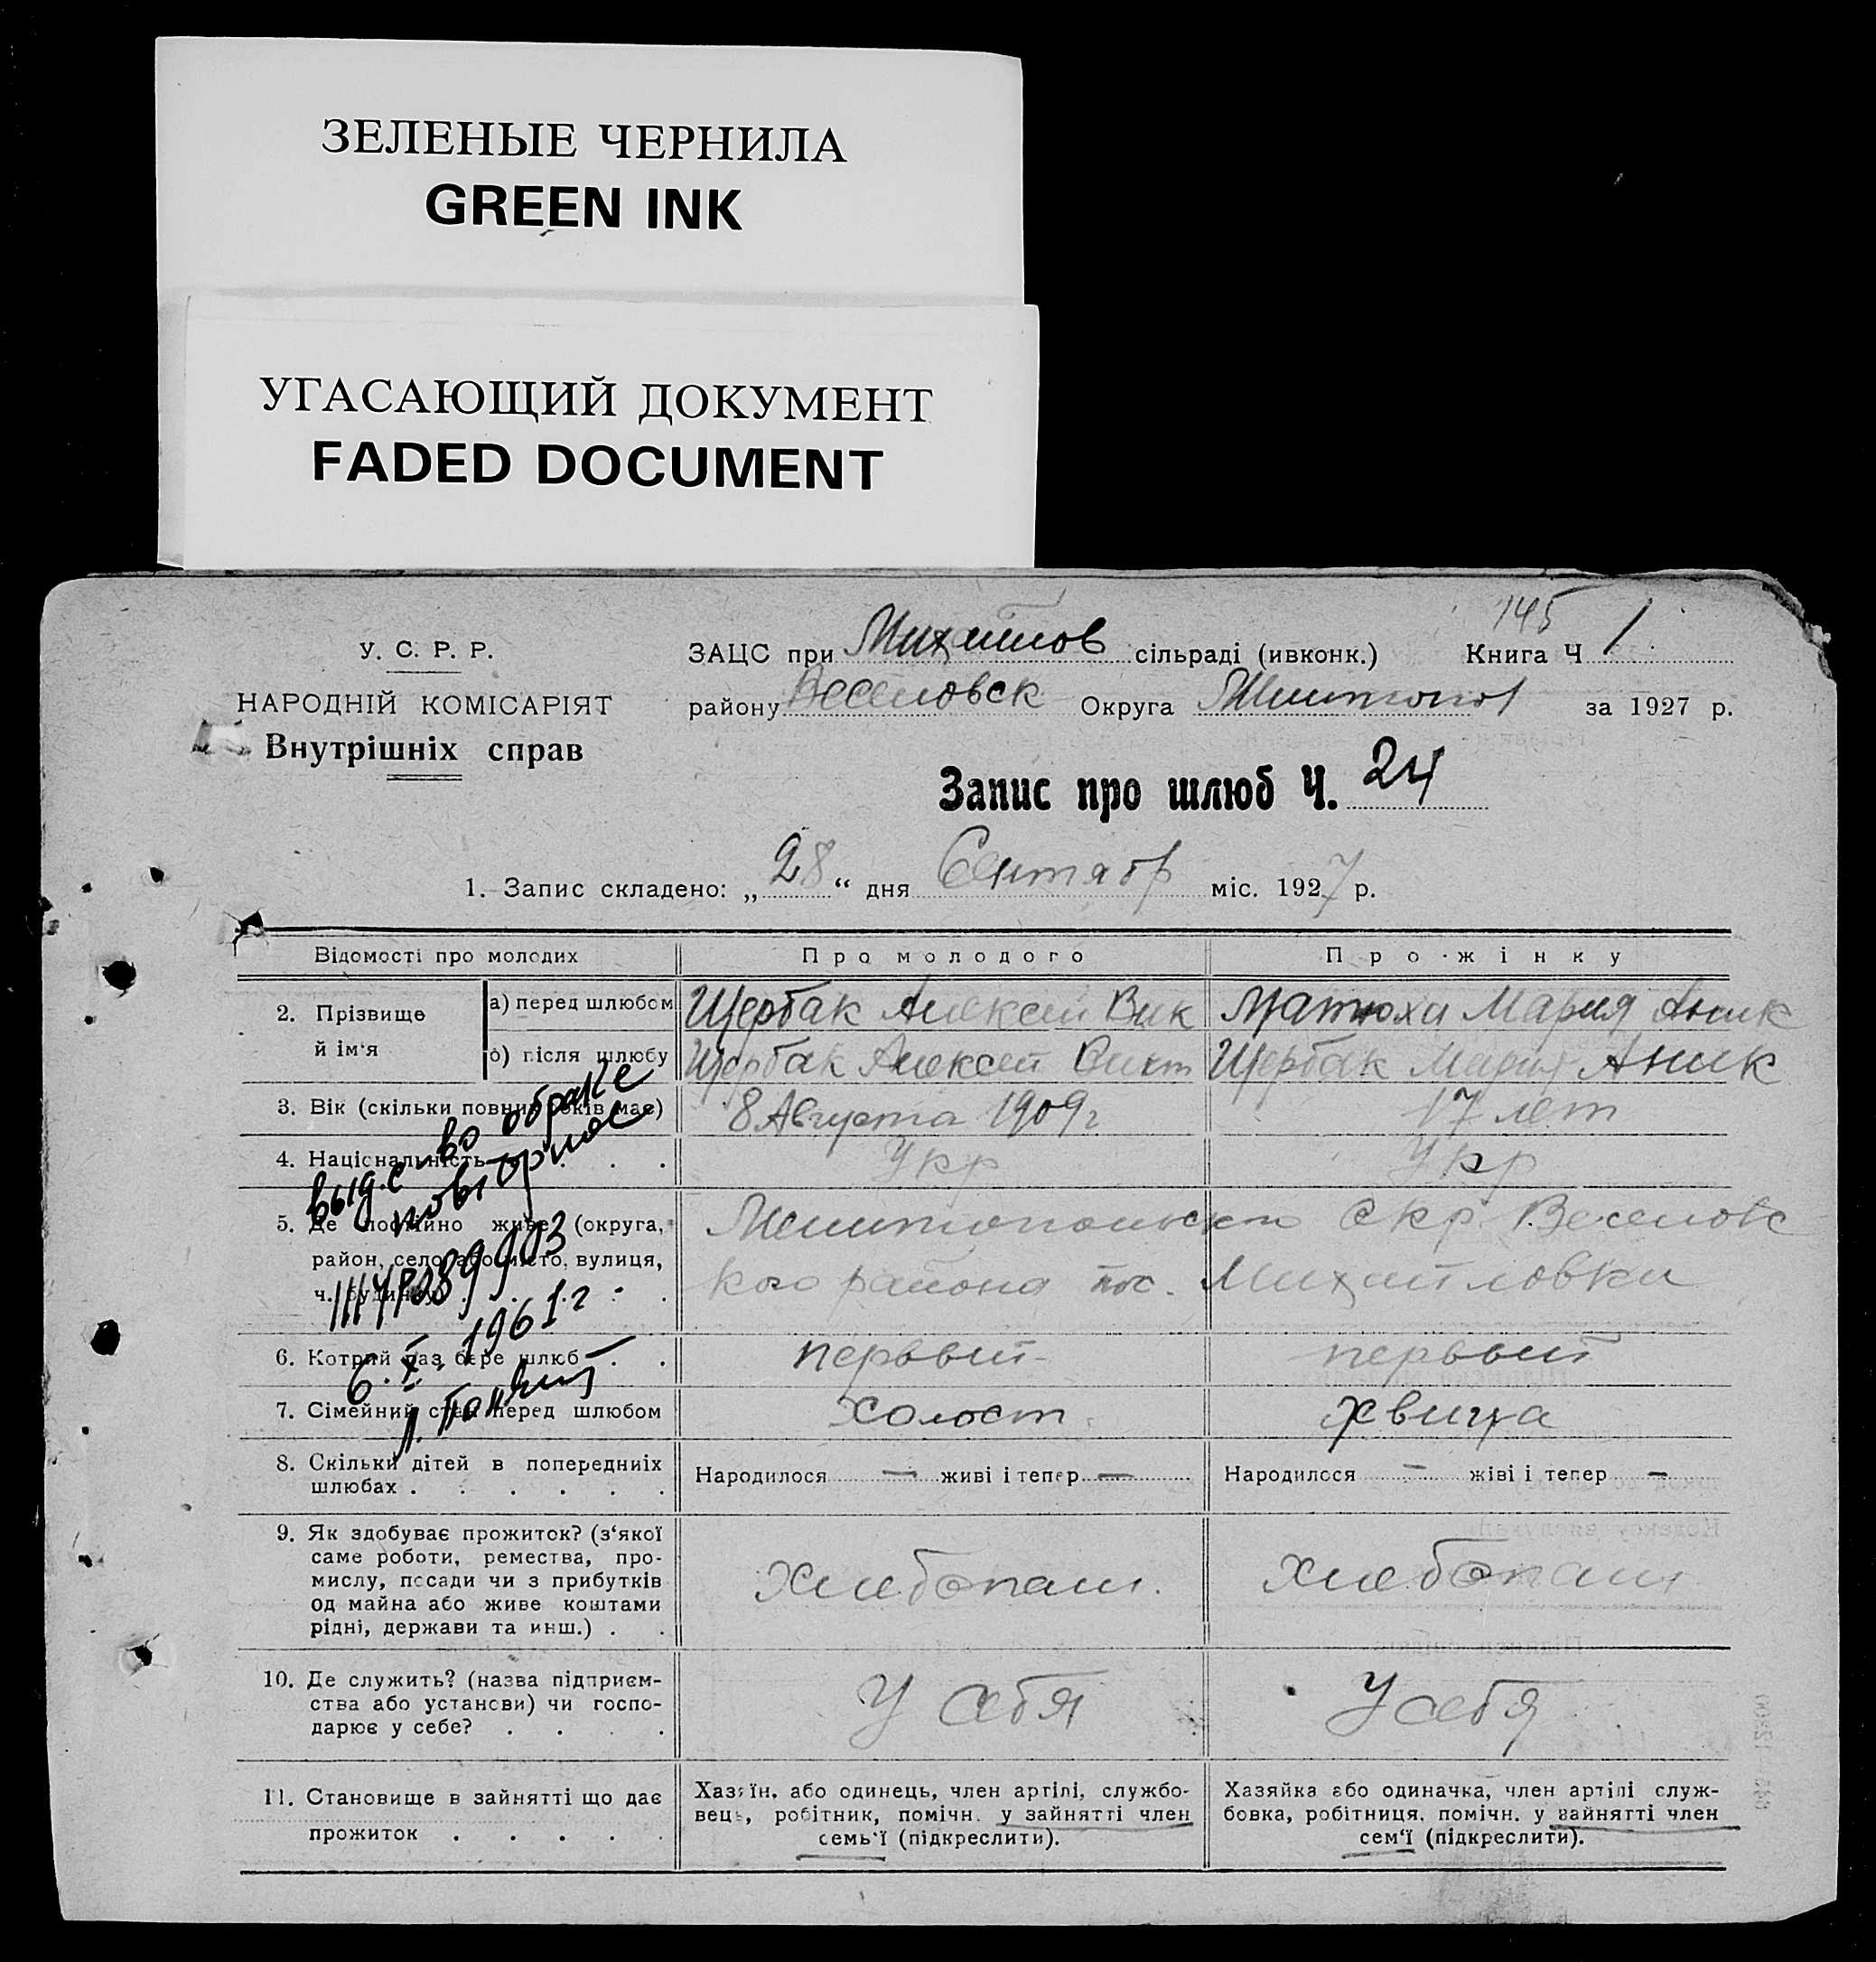 ЗЕЛЕНЫЕ ЧЕРНИЛА
GREEN INK
УГАСАЮЩИЙ ДОКУМЕНТ
FADED DOCUMENT
145
У. С. Р. Р.
НАРОДНІЙ КОМІСАРІЯТ
Внутрішніх справ
ЗАЦС при Михайлов сільраді (ивконк.) Книга Ч 1
району Веселовск Округа за 1927 р.
Запис про шлюб Ч. 24
1. Запис складено: „28“ дня Сентябр міс. 1927 р.
Відомості про молодих
Про молодого
Про жінку
2. Прізвище й ім‘я
а) перед шлюбом Щербак Алексей Вик Матюха Мария Аник
б) після шлюбу Щербак Алексей Викт Щербак Мария Аник
3. Вік (скільки повних років має) 8 Августа 1909 г 17 лет
4. Національність . . . Укр Укр
5. Де постійно живе (округа,
район, село або місто, вулиця,
ч. будинку) . . . .
Мелитопольск Окр. Веселовс
кого района пос. Михайловки
6. Котрий раз бере шлюб . . первый первый
7. Сімейний стан перед шлюбом холост
выд. с-во о браке
повторное
6.X.1961 г
8. Скільки дітей в попередніх
шлюбах . . . . . .
Народилося — живі і тепер —
Народилося — жіві і тепер —
9. Як здобуває прожиток? (з‘якої
саме роботи, ремества, про-
мислу, посади чи з прибутків
од майна або живе коштами
рідні, держави та инш.) . .
хлебопаш. хлебопаш
10. Де служить? (назва підприєм-
ства або установи) чи госпо-
дарює у себе? . . . .
У себя У себя
11. Становище в зайнятті що дає
прожиток . . . . .
Хазяїн, або одинець, член артілі, службо-
вець, робітник, помічн. у зайнятті член
семь‘ї (підкреслити).
Хазяйка або одиначка, член артілі служ-
бовка, робітниця, помічн. у зайнятті член
сем‘ї (підкреслити).